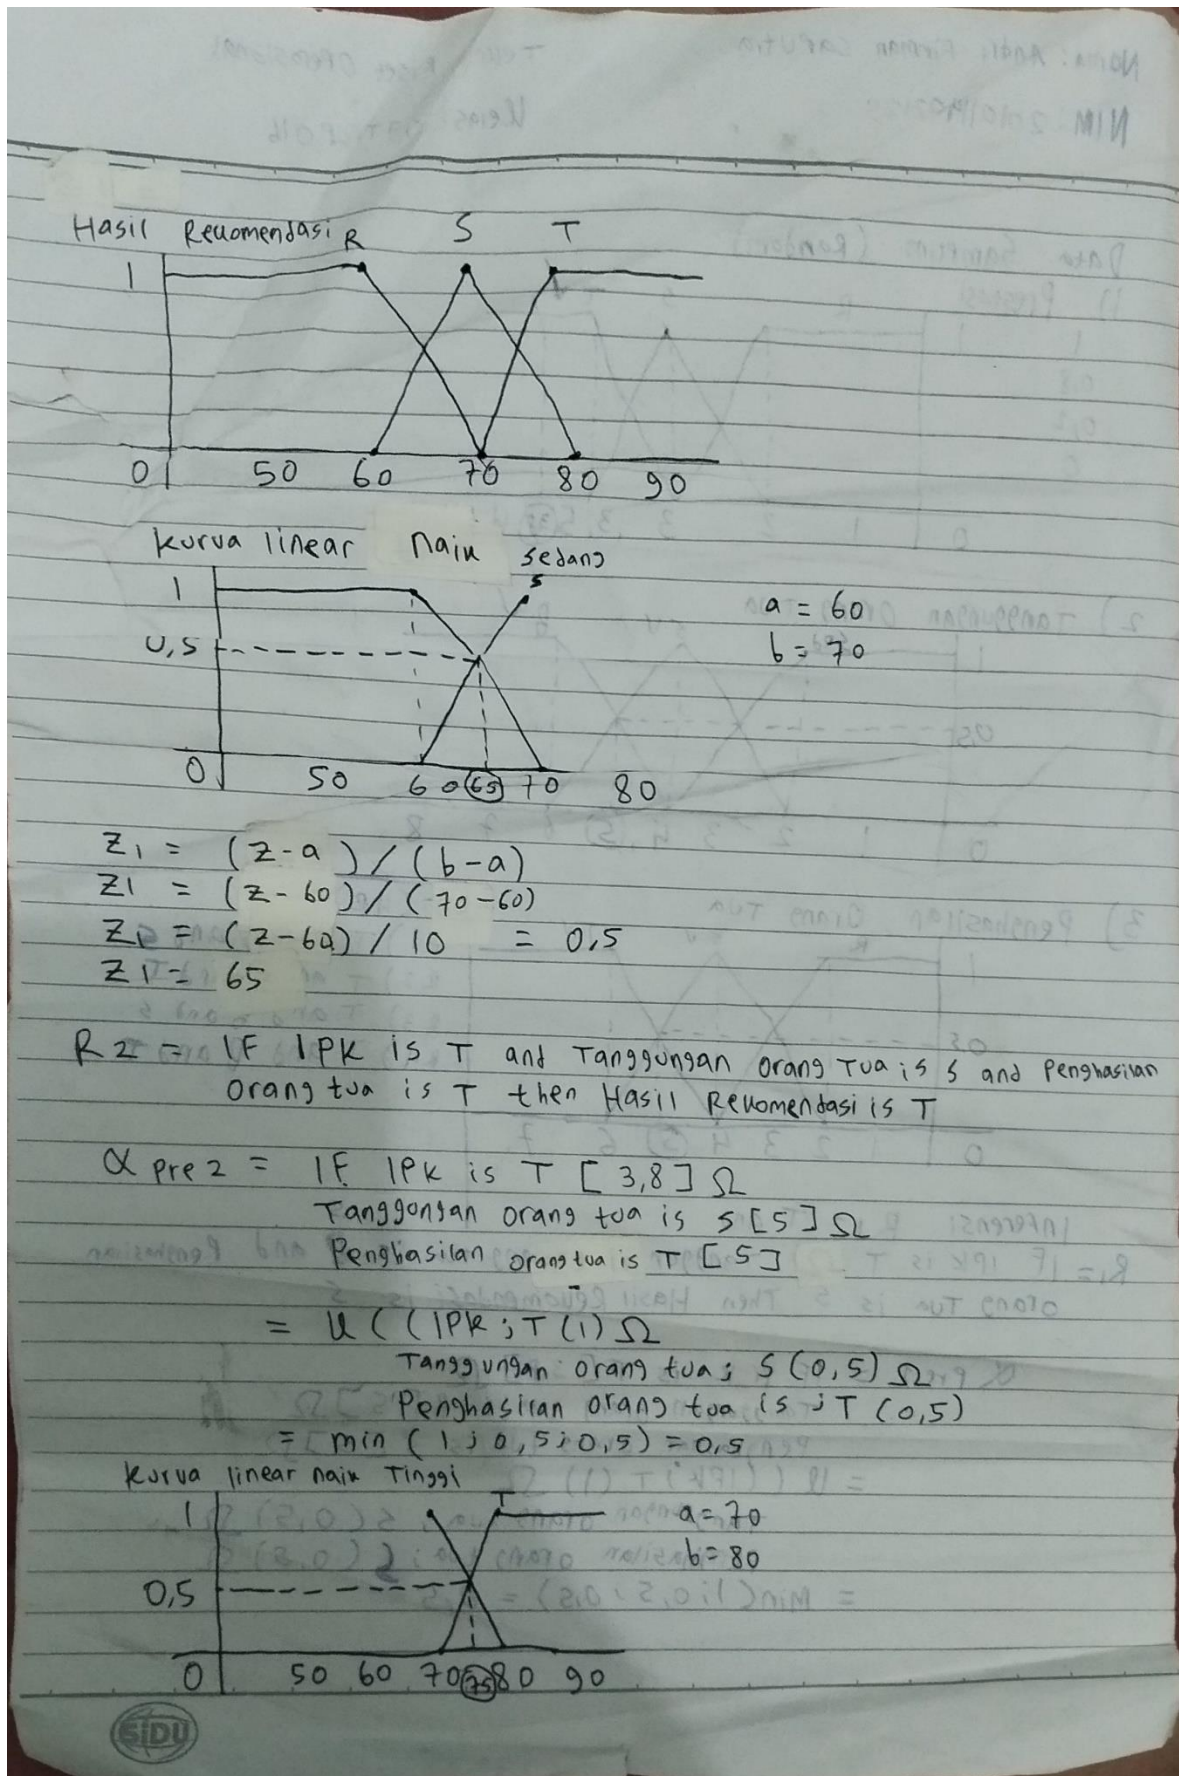 Hasil Rekomendasi R S T
1
0 50 60 70 80 90
Kurva linear naik sedang
S
1
a = 60
0,5
b = 70
0 50 60 65 70 80
Z1 = (z-a)/(b-a)
Z1 = (z-60)/(70-60)
Z1 = (z-60)/10 = 0,5
Z1 = 65
R2 = IF IPK is T and Tanggungan orang Tua is S and Penghasilan
orang tua is T then Hasil Rekomendasi is T
α pre 2 = IF IPK is T [3,8] Ω
Tanggungan orang tua is S [5] Ω
Penghasilan orang tua is T [5]
= U ((IPK ; T (1) Ω
Tanggungan orang tua ; S (0,5) Ω
Penghasilan orang tua is ; T (0,5)
= min (1 ; 0,5 ; 0,5) = 0,5
Kurva linear naik Tinggi
T
1
a = 70
b = 80
0,5
0 50 60 70 75 80 90
SiDU